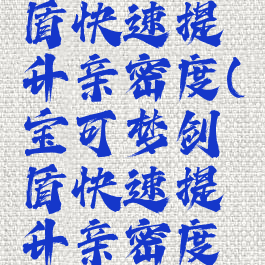 盾快速提
升亲密度(
宝可梦剑
盾快速提
升亲密度